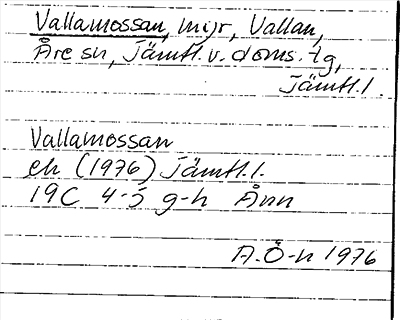 Vallamossan, myr, Vallan,
Åre sn, Jämtl. v. doms. tg,
Jämtl. l.
Vallamossan
ek (1976) Jämtl. l.
19C 4-5 g-h Ånn
A.Ö-n 1976